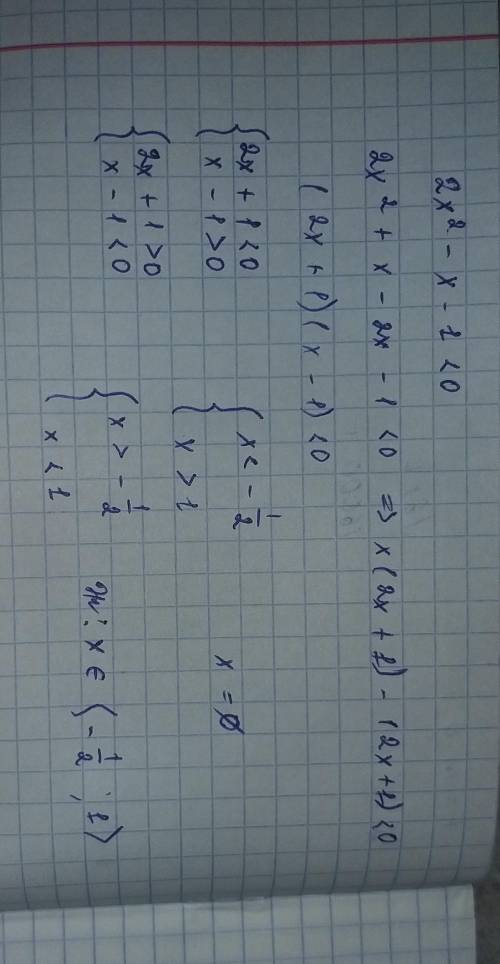 2x² - x - 1 < 0
2x² + x - 2x - 1 < 0 ⇒ x(2x + 1) - (2x + 1) < 0
(2x + 1)(x - 1) < 0
{ 2x + 1 < 0 { x < -1/2
x - 1 > 0 x > 1 x = ∅
{ 2x + 1 > 0 { x > -1/2
x - 1 < 0 x < 1 : x ∈ (-1/2; 1)